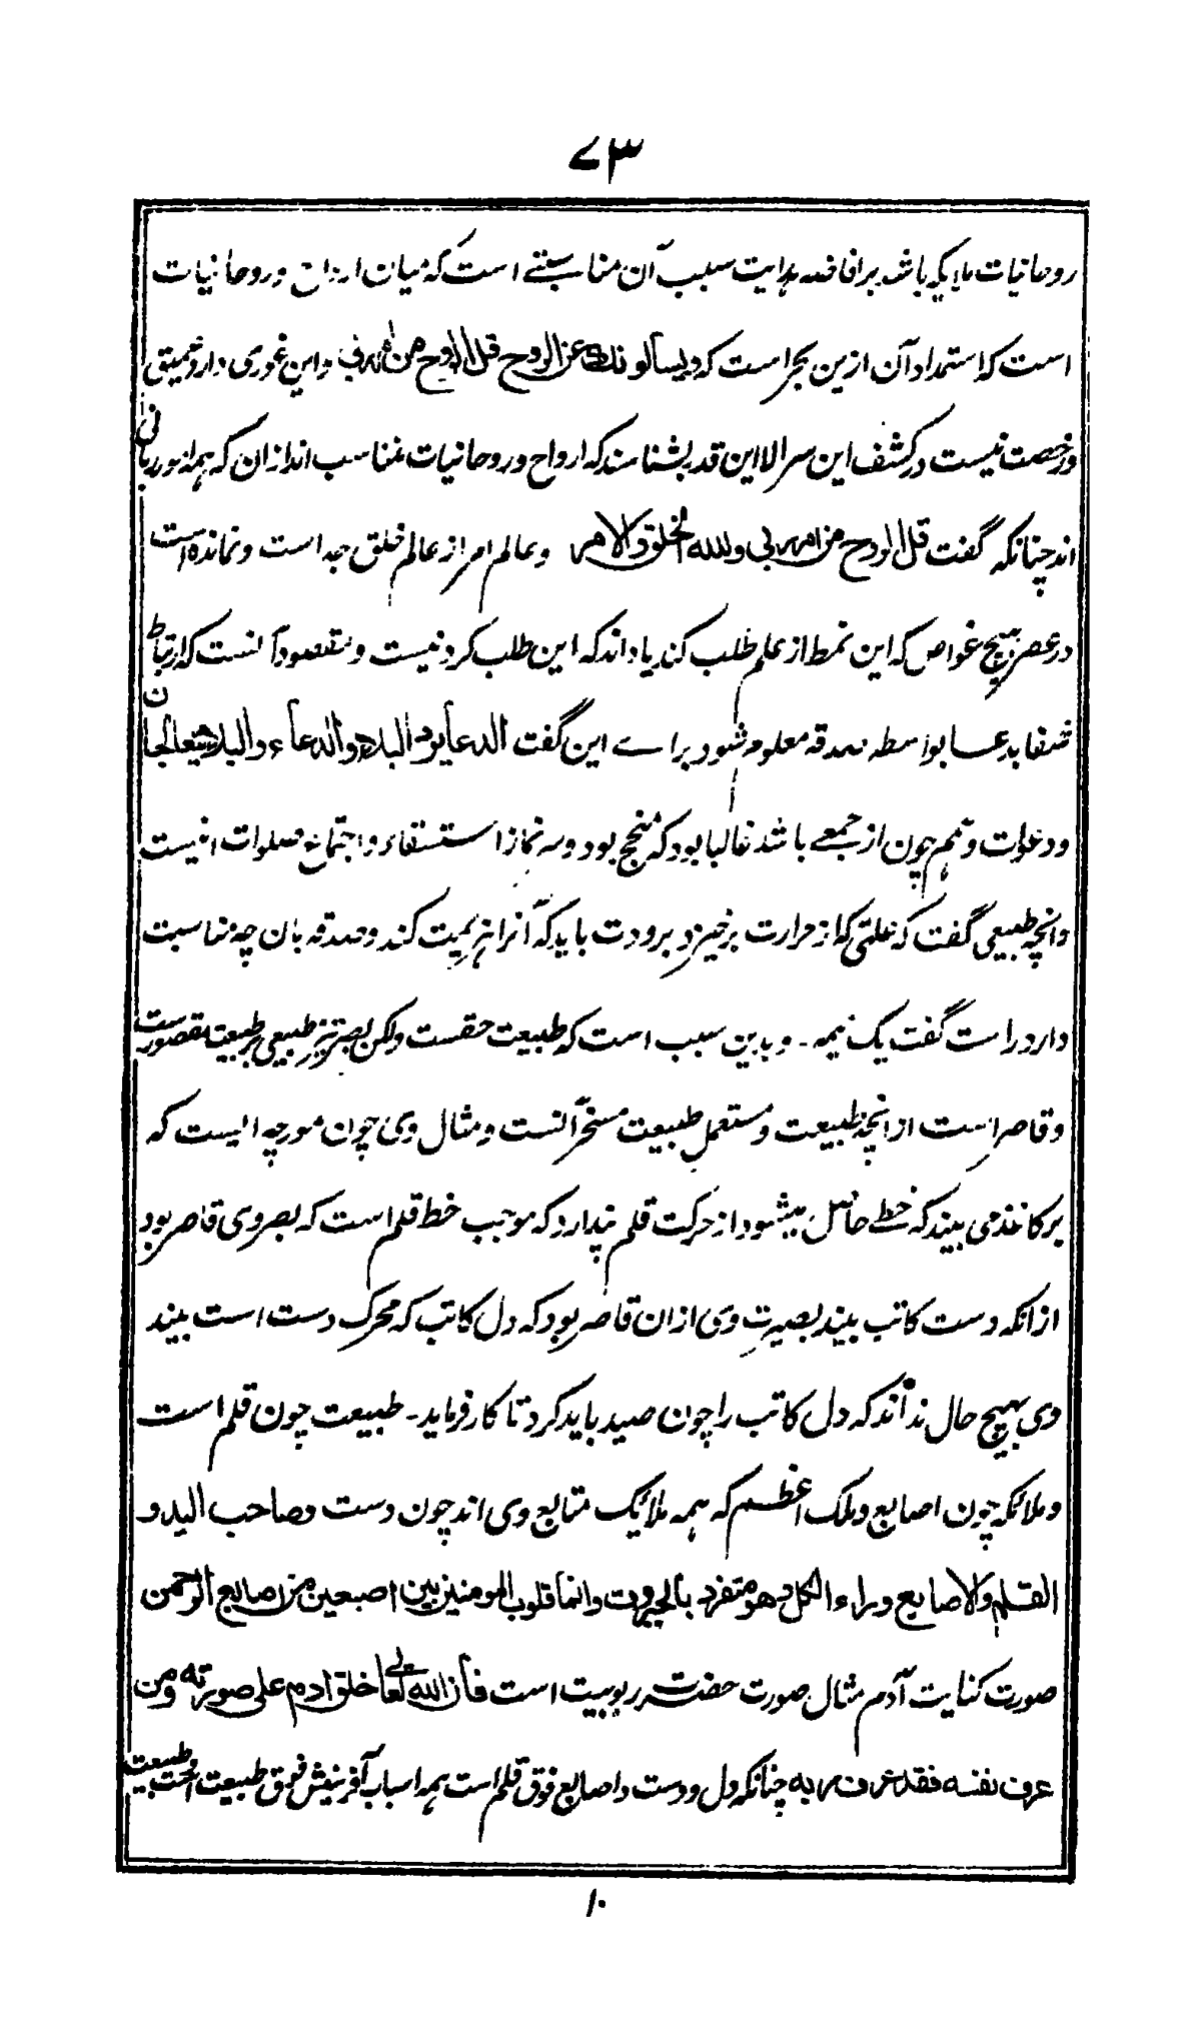 ۷۳
روحانیات ملایکه باشد برافاضه هدایت سبب آن مناسبتے است که میان ارواح و روحانیات
است که استمداد آن ازین بحر است که ویسألونك عن الروح قل الروح من امر ربی واین غوری دارد عمیق
ورخصت نیست در کشف این سر الا این قدر بشناسند که ارواح و روحانیات متناسب اند ازان که همه امور ربانی
اند چنانکه گفت قل الروح من امر ربی ولله الخلق والامر وعالم امر از عالم خلق جداست ونمانده است
در عصر هیچ غواص که این نمط از علم طلب کند یا داند که این طلب کردنیست و مقصود آنست که ارتباط
شفا بدعا بواسطه صدقه معلوم شود براے این گفت الدعا یرد البلاء والدعاء والبلاء یتعالجان
ودعوات وهمم چون از جمعے باشد غالبا بود که منجح بود وسر نماز استسقاء واجتماع صلوات اینست
وانچه طبیعی گفت که علتی که از حرارت برخیزد ببرودت باید که آنرا هزیمیت کند وصدقه بان چه مناسبت
دارد راست گفت یک نیمه - وبدین سبب است که طبیعت حقست ولکن بصر تیز طبیعی بر طبیعت مقصورست
وقاصر است از انچه طبیعت ومستعمل طبیعت مسخر آنست ومثال وی چون مورچه ایست که
بر کاغذ می بیند که خطے حاصل میشود از حرکت قلم پندارد که موجب خط قلم است که بصر وی قاصر بود
ازانکه دست کاتب بیند بصیرت وی ازان قاصر بود که دل کاتب که محرک دست است بیند
وی بهیچ حال نداند که دل کاتب را چون صید باید کرد تا کار فرماید - طبیعت چون قلم است
وملائکه چون اصابع وملک اعظم که همه ملائک متابع وی اند چون دست وصاحب الید و
القلم والاصابع وراء الکل وهو متفرد بالجبروت وانما قلوب المومنین بین اصبعین من اصابع الرحمن
صورت کتابت آدم مثال صورت حضرت ربوبیت است فان الله تعالی خلق ادم علی صورته ومن
عرف نفسه فقد عرف ربه چنانکه دل ودست واصابع فوق قلم است همه اسباب آفرینش فوق طبیعت است طبیعت
۱۰